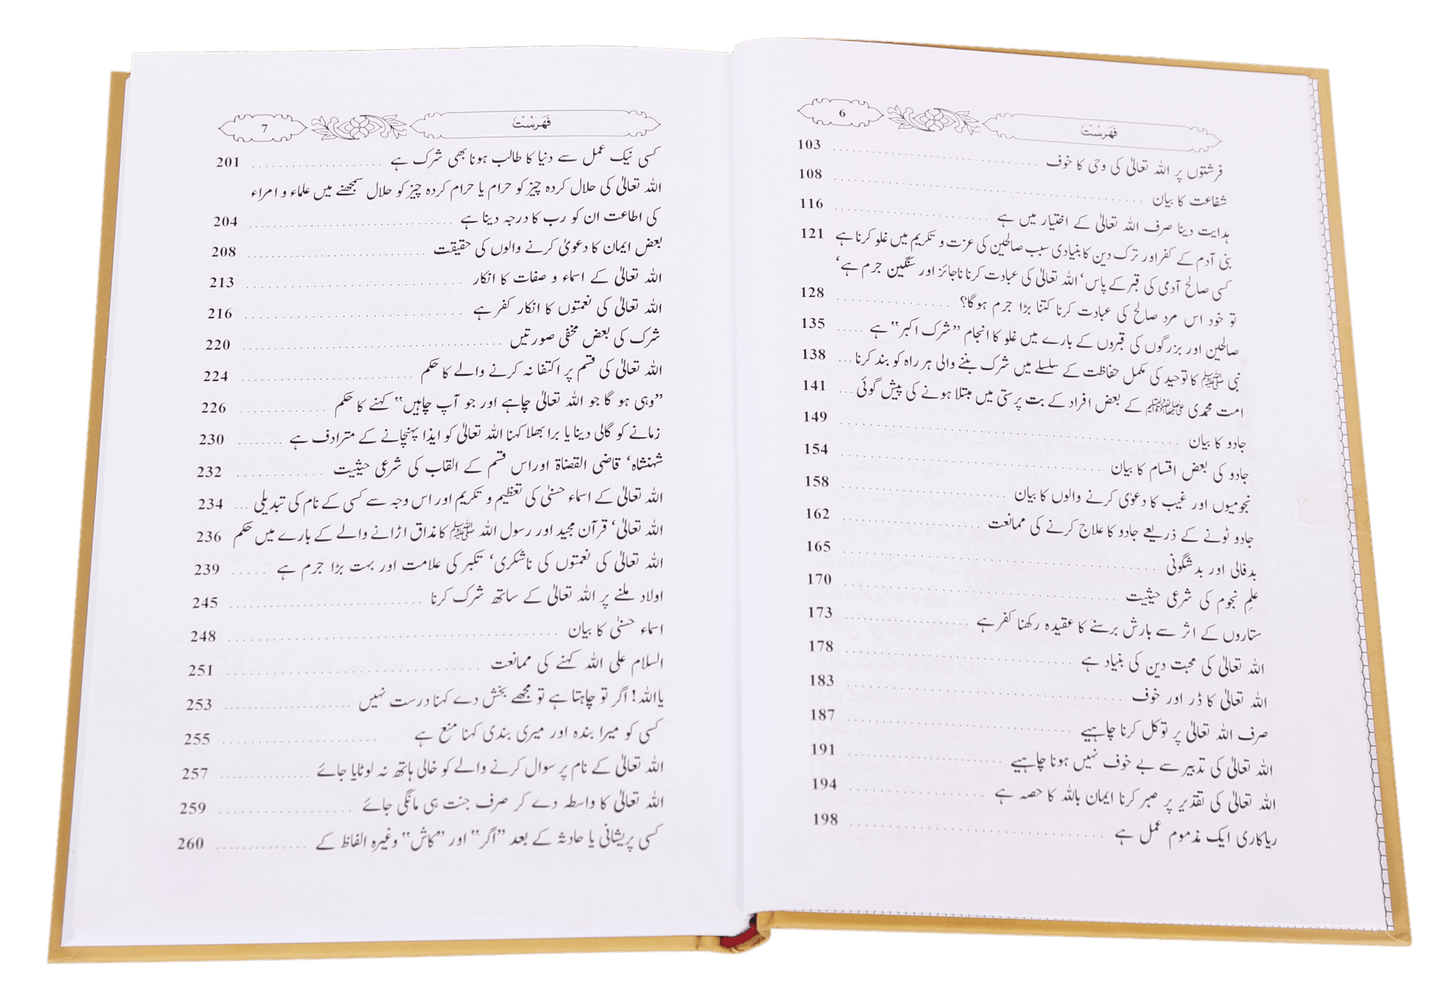 6 فَہَرسْت
فرشتوں پر اللہ تعالیٰ کی وحی کا خوف 103
شفاعت کا بیان 108
ہدایت دینا صرف اللہ تعالیٰ کے اختیار میں ہے 116
بنی آدم کے کفر اور ترک دین کا بنیادی سبب صالحین کی عزت و تکریم میں غلو کرنا ہے 121
کسی صالح آدمی کی قبر کے پاس‘ اللہ تعالیٰ کی عبادت کرنا ناجائز اور سنگین جرم ہے‘
تو خود اس مرد صالح کی عبادت کرنا کتنا بڑا جرم ہو گا؟ 128
صالحین اور بزرگوں کی قبروں کے بارے میں غلو کا انجام ’’شرک اکبر‘‘ ہے 135
نبی ﷺ کا توحید کی مکمل حفاظت کے سلسلے میں شرک بننے والی ہر راہ کو بند کرنا 138
امت محمدی ﷺ کے بعض افراد کے بت پرستی میں مبتلا ہونے کی پیش گوئی 141
جادو کا بیان 149
جادو کی بعض اقسام کا بیان 154
نجومیوں اور غیب کا دعوٰی کرنے والوں کا بیان 158
جادو ٹونے کے ذریعے جادو کا علاج کرنے کی ممانعت 162
بدفالی اور بدشگونی 165
علم نجوم کی شرعی حیثیت 170
ستاروں کے اثر سے بارش برسنے کا عقیدہ رکھنا کفر ہے 173
اللہ تعالیٰ کی محبت دین کی بنیاد ہے 178
اللہ تعالیٰ کا ڈر اور خوف 183
صرف اللہ تعالیٰ پر توکل کرنا چاہیے 187
اللہ تعالیٰ کی تدبیر سے بے خوف نہیں ہونا چاہیے 191
اللہ تعالیٰ کی تقدیر پر صبر کرنا ایمان باللہ کا حصہ ہے 194
ریاکاری ایک مذموم عمل ہے 198
7 فَہَرسْت
کسی نیک عمل سے دنیا کا طالب ہونا بھی شرک ہے 201
اللہ تعالیٰ کی حلال کردہ چیز کو حرام یا حرام کردہ چیز کو حلال سمجھنے میں علماء و امراء
کی اطاعت ان کو رب کا درجہ دینا ہے 204
بعض ایمان کا دعویٰ کرنے والوں کی حقیقت 208
اللہ تعالیٰ کے اسماء و صفات کا انکار 213
اللہ تعالیٰ کی نعمتوں کا انکار کفر ہے 216
شرک کی بعض مخفی صورتیں 220
اللہ تعالیٰ کی قسم پر اکتفا نہ کرنے والے کا حکم 224
’’وہی ہو گا جو اللہ تعالیٰ چاہے اور جو آپ چاہیں‘‘ کہنے کا حکم 226
زمانے کو گالی دینا یا برا بھلا کہنا اللہ تعالیٰ کو ایذا پہنچانے کے مترادف ہے 230
شہنشاہ‘ قاضی القضاۃ اور اس قسم کے القاب کی شرعی حیثیت 232
اللہ تعالیٰ کے اسماء حسنٰی کی تعظیم و تکریم اور اس وجہ سے کسی کے نام کی تبدیلی 234
اللہ تعالیٰ‘ قرآن مجید اور رسول اللہ ﷺ کا مذاق اڑانے والے کے بارے میں حکم 236
اللہ تعالیٰ کی نعمتوں کی ناشکری‘ تکبر کی علامت اور بہت بڑا جرم ہے 239
اولاد ملنے پر اللہ تعالیٰ کے ساتھ شرک کرنا 245
اسماء حسنٰی کا بیان 248
السلام علی اللہ کہنے کی ممانعت 251
یا اللہ! اگر تو چاہتا ہے تو مجھے بخش دے کہنا درست نہیں 253
کسی کو میرا بندہ اور میری بندی کہنا منع ہے 255
اللہ تعالیٰ کے نام پر سوال کرنے والے کو خالی ہاتھ نہ لوٹایا جائے 257
اللہ تعالیٰ کا واسطہ دے کر صرف جنت ہی مانگی جائے 259
کسی پریشانی یا حادثہ کے بعد ’’اگر‘‘ اور ’’کاش‘‘ وغیرہ الفاظ کے 260